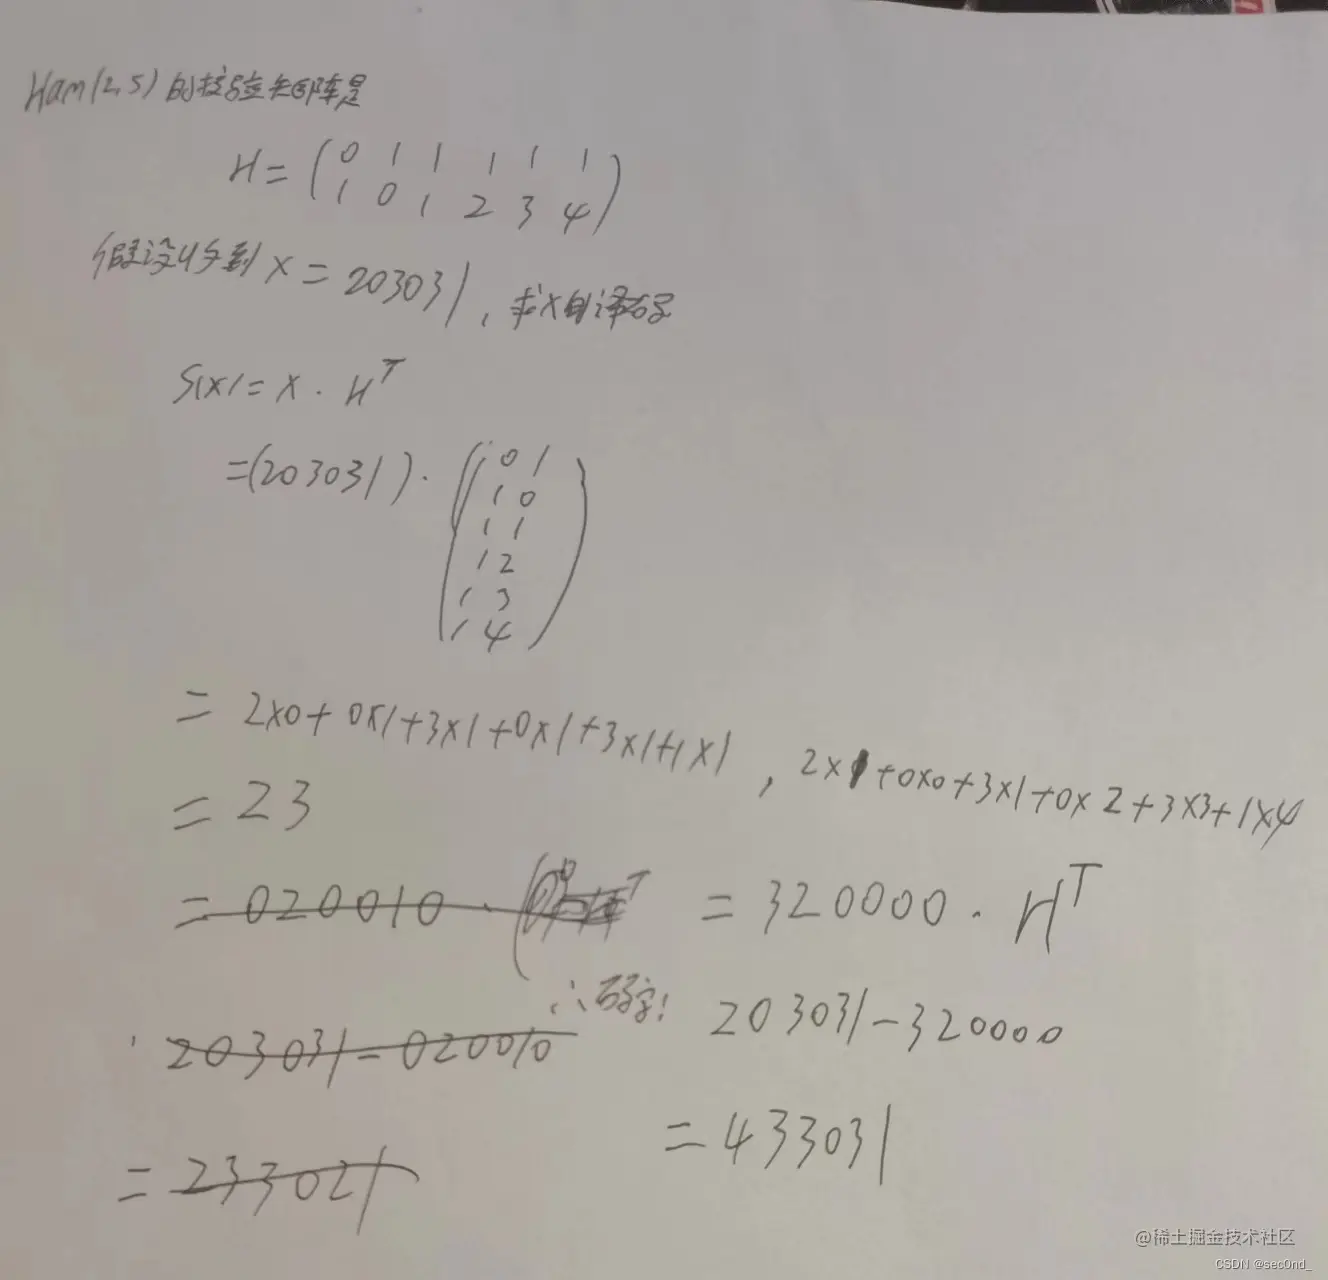 Ham(2,5)的校验矩阵是
H = ( 0 1 1 1 1 1
1 0 1 2 3 4 )
假设收到 X = 203031, 求X的译码
S(x) = X · H^T
=(203031) · ( 0 1
1 0
1 1
1 2
1 3
1 4 )
= 2x0+0x1+3x1+0x1+3x1+1x1 , 2x1+0x0+3x1+0x2+3x3+1x4
= 23
= 020010 · T = 320000 · H^T
∴ 码字: 203031-320000
203031-020010
= 433031
= 233021
@稀土掘金技术社区
CSDN @sec0nd_